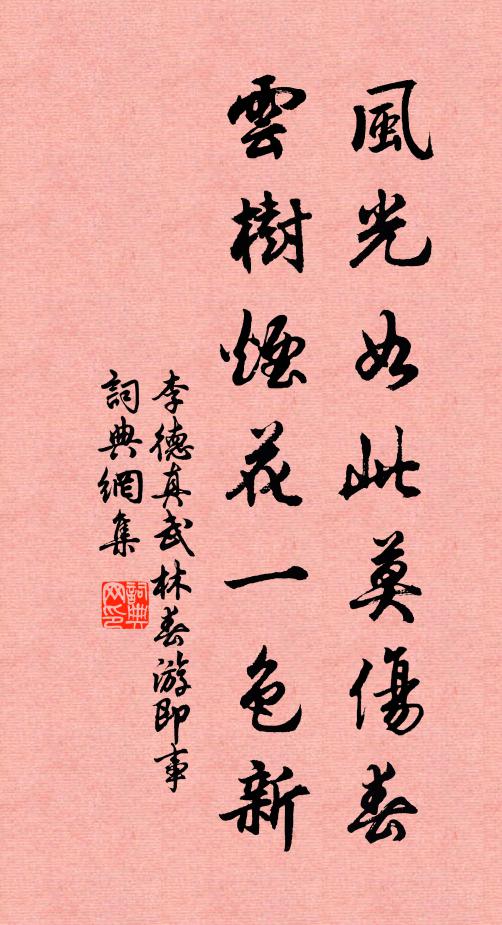 風光如此莫傷春
雲樹煙花一色新
李德真武林春游即事
詞典網集
詞典
网印